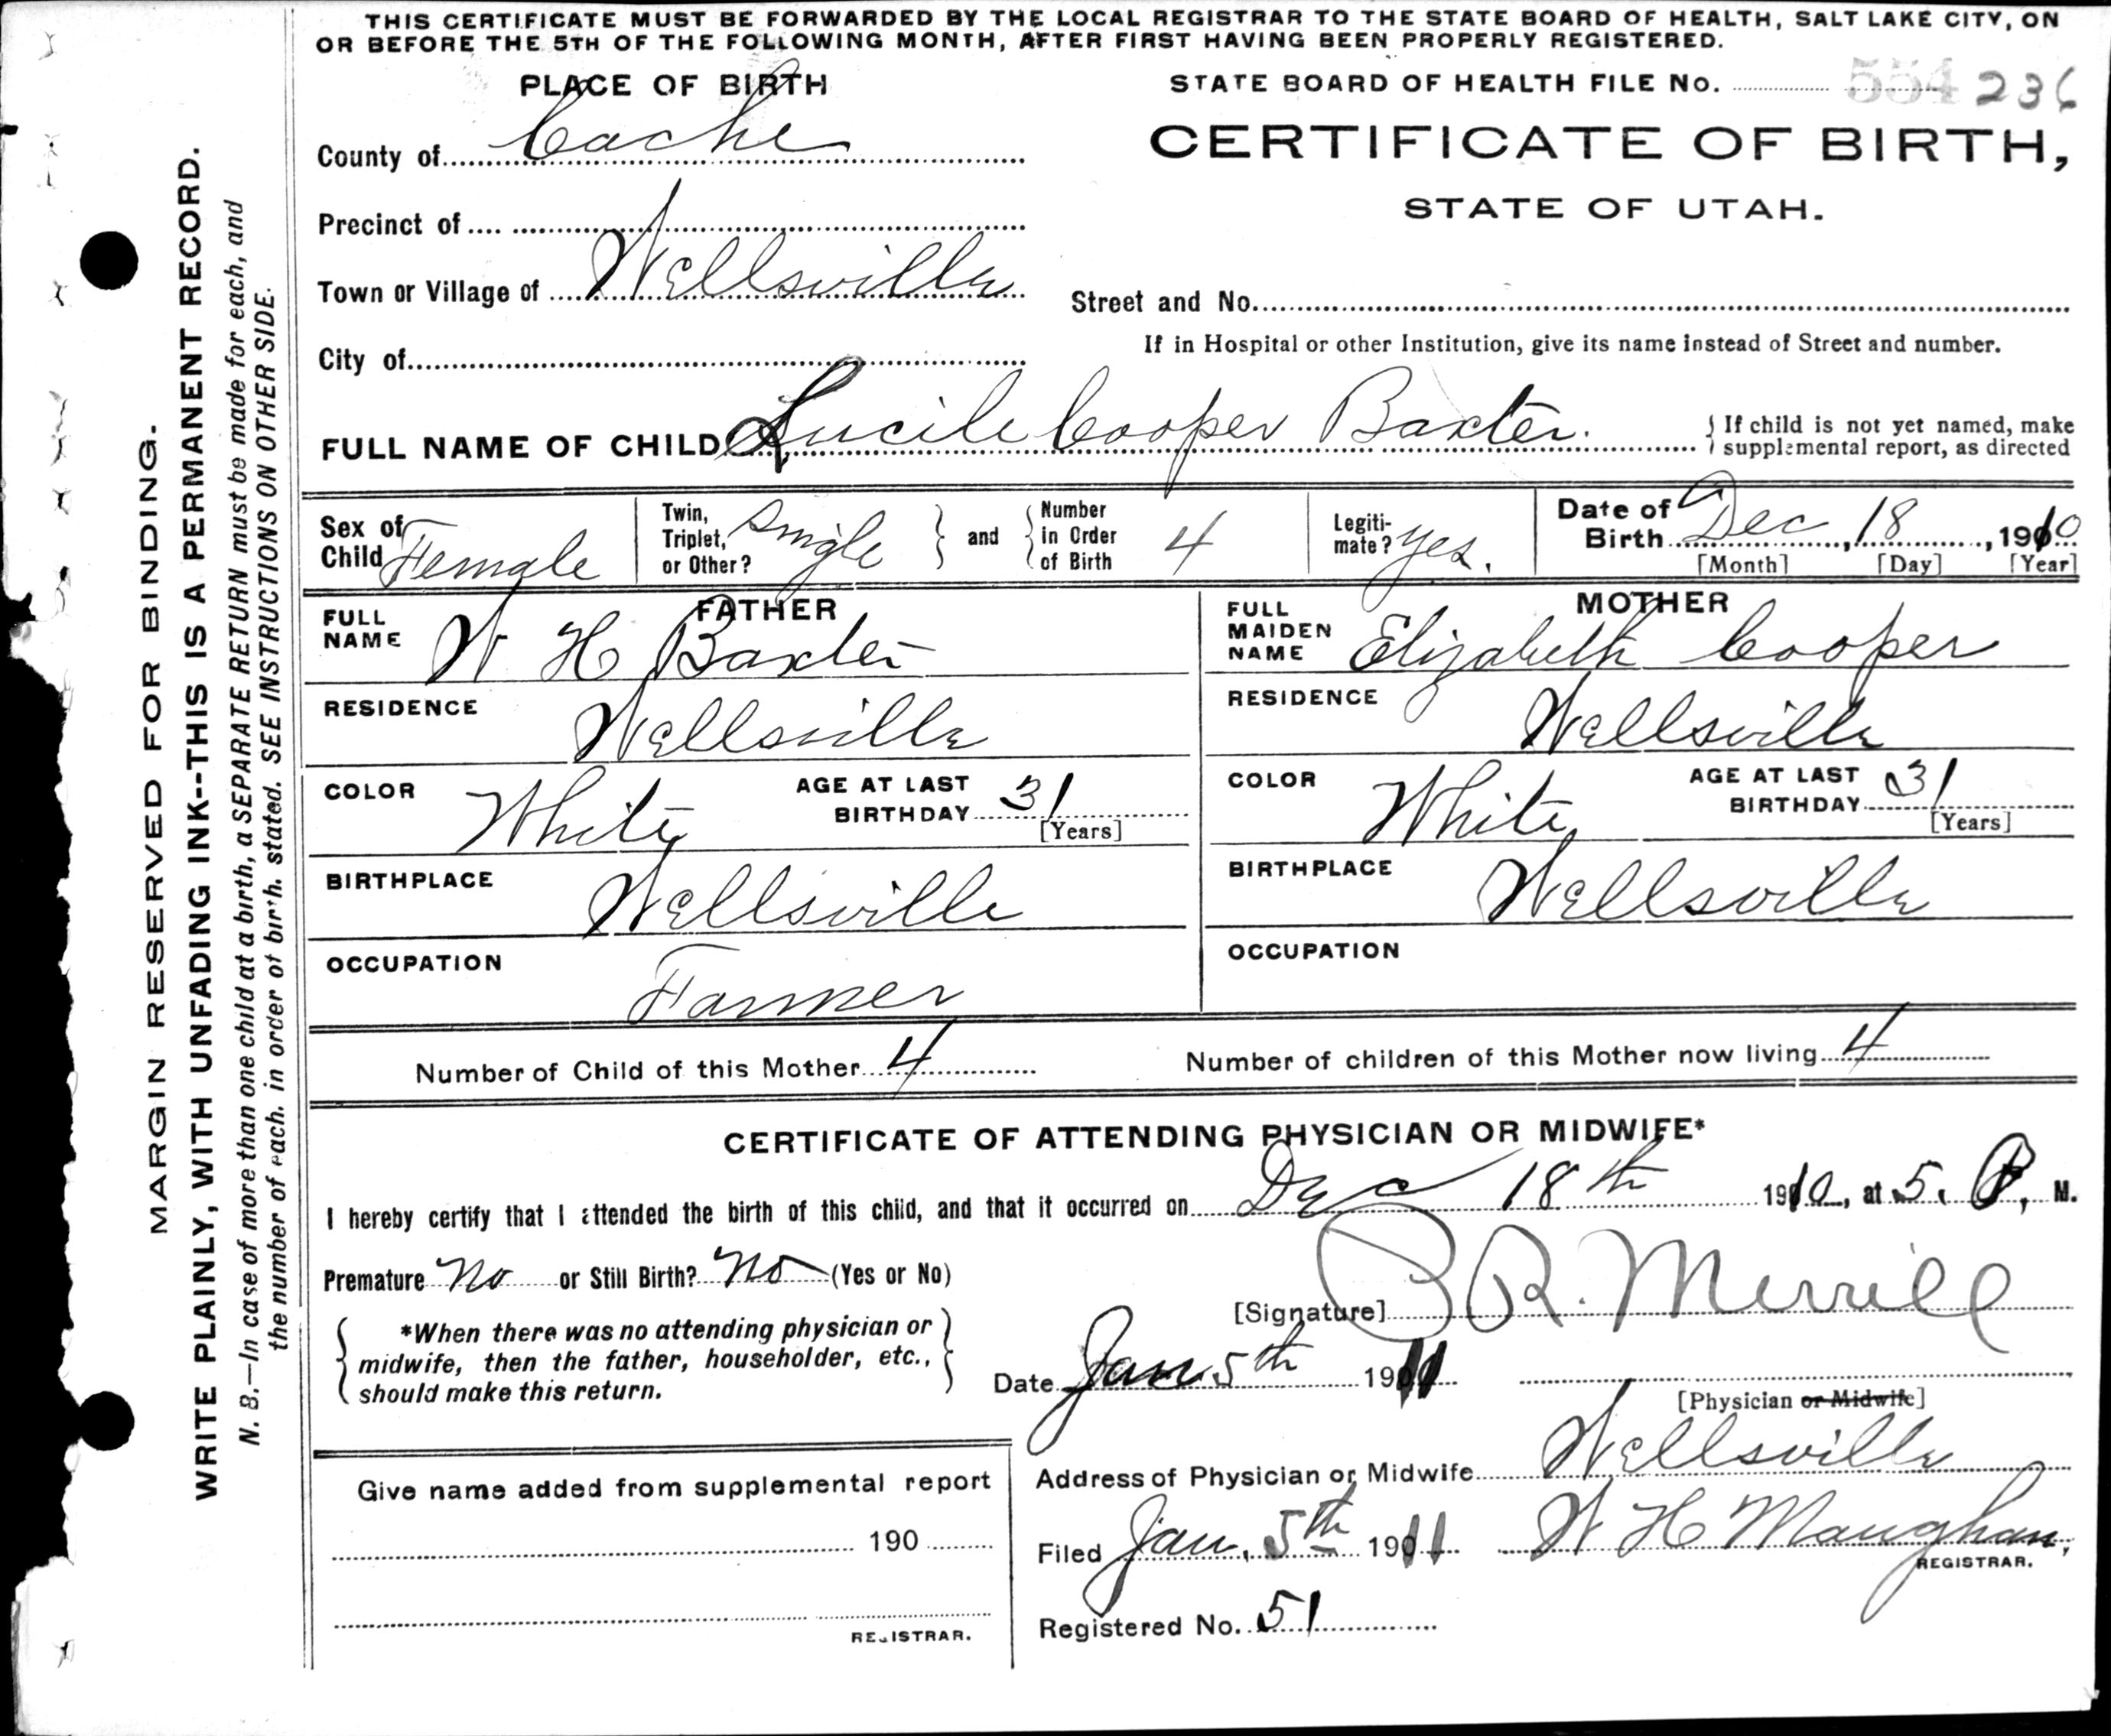 THIS CERTIFICATE MUST BE FORWARDED BY THE LOCAL REGISTRAR TO THE STATE BOARD OF HEALTH, SALT LAKE CITY, ON
OR BEFORE THE 5TH OF THE FOLLOWING MONTH, AFTER FIRST HAVING BEEN PROPERLY REGISTERED.
PLACE OF BIRTH
STATE BOARD OF HEALTH FILE No. 554 236
County of Cache
CERTIFICATE OF BIRTH,
STATE OF UTAH.
Precinct of
Town or Village of Wellsville
Street and No.
City of
If in Hospital or other Institution, give its name instead of Street and number.
FULL NAME OF CHILD Lucile Cooper Baxter.
If child is not yet named, make
supplemental report, as directed
Sex of
Child Female
Twin,
Triplet,
or Other? Single
and
Number
in Order
of Birth 4
Legiti-
mate? Yes.
Date of
Birth Dec, 18, 1910
[Month] [Day] [Year]
FATHER
FULL
NAME W H Baxter
RESIDENCE Wellsville
COLOR White
AGE AT LAST
BIRTHDAY 31
[Years]
BIRTHPLACE Wellsville
OCCUPATION Farmer
MOTHER
FULL
MAIDEN
NAME Elizabeth Cooper
RESIDENCE Wellsville
COLOR White
AGE AT LAST
BIRTHDAY 31
[Years]
BIRTHPLACE Wellsville
OCCUPATION
Number of Child of this Mother 4
Number of children of this Mother now living 4
CERTIFICATE OF ATTENDING PHYSICIAN OR MIDWIFE*
I hereby certify that I attended the birth of this child, and that it occurred on Dec 18th 1910, at 5. P, M.
Premature No or Still Birth? No (Yes or No)
[Signature] R. Merrill
*When there was no attending physician or
midwife, then the father, householder, etc.,
should make this return.
Date Jan 5th 1911
[Physician or Midwife]
Address of Physician or Midwife Wellsville
Give name added from supplemental report
190
REGISTRAR.
Filed Jan, 5th 1911 W H Maughan,
REGISTRAR.
Registered No. 51
MARGIN RESERVED FOR BINDING.
WRITE PLAINLY, WITH UNFADING INK--THIS IS A PERMANENT RECORD.
N. B.—In case of more than one child at a birth, a SEPARATE RETURN must be made for each, and
the number of each. in order of birth. stated. SEE INSTRUCTIONS ON OTHER SIDE.